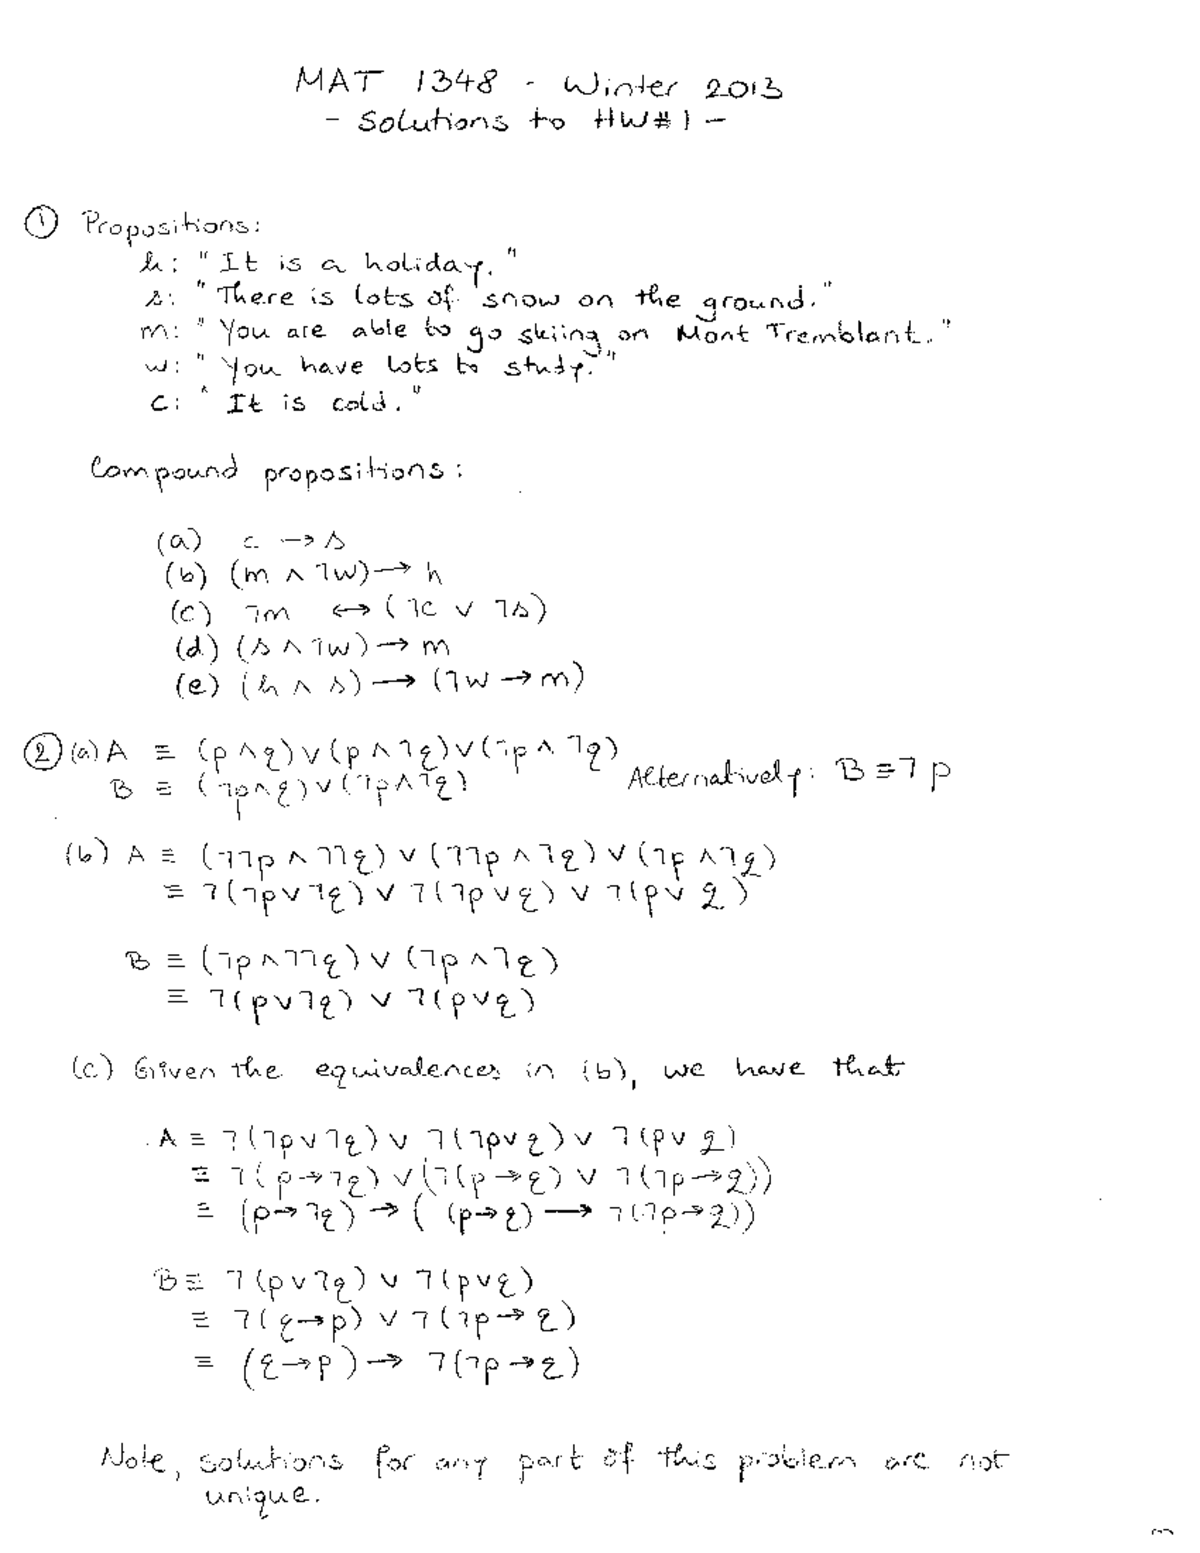 MAT 1348 - Winter 2013
- Solutions to HW#1 -
① Propositions:
h: "It is a holiday."
s: "There is lots of snow on the ground."
m: "You are able to go skiing on Mont Tremblant."
w: "You have lots to study."
c: "It is cold."
Compound propositions:
(a) c → s
(b) (m ∧ ¬w) → h
(c) ¬m ↔ (¬c ∨ ¬s)
(d) (s ∧ ¬w) → m
(e) (h ∧ s) → (¬w → m)
② (a) A ≡ (p ∧ q) ∨ (p ∧ ¬q) ∨ (¬p ∧ ¬q)
B ≡ (¬p ∧ q) ∨ (¬p ∧ ¬q) Alternatively: B ≡ ¬p
(b) A ≡ (¬¬p ∧ ¬¬q) ∨ (¬¬p ∧ ¬q) ∨ (¬p ∧ ¬q)
≡ ¬(¬p ∨ ¬q) ∨ ¬(¬p ∨ q) ∨ ¬(p ∨ q)
B ≡ (¬p ∧ ¬¬q) ∨ (¬p ∧ ¬q)
≡ ¬(p ∨ ¬q) ∨ ¬(p ∨ q)
(c) Given the equivalences in (b), we have that
A ≡ ¬(¬p ∨ ¬q) ∨ ¬(¬p ∨ q) ∨ ¬(p ∨ q)
≡ ¬(p → ¬q) ∨ (¬(p → q) ∨ ¬(¬p → q))
≡ (p → ¬q) → ((p → q) → ¬(¬p → q))
B ≡ ¬(p ∨ ¬q) ∨ ¬(p ∨ q)
≡ ¬(q → p) ∨ ¬(¬p → q)
≡ (q → p) → ¬(¬p → q)
Note, solutions for any part of this problem are not
unique.